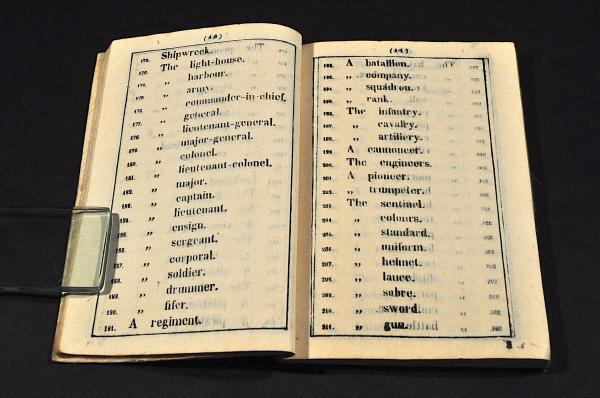 172. Shipwreck.
The light-house.
„ harbour.
„ army.
„ commander-in-chief.
„ general.
„ lieutenant-general.
„ major-general.
„ colonel.
180. „ lieutenant-colonel.
181. „ major.
182. „ captain.
„ lieutenant.
„ ensign.
„ sergeant.
„ corporal.
187. „ soldier.
188. „ drummer.
189. „ fifer.
190.
191. A regiment.
A batallion.
„ company.
„ squadron.
„ rank.
The infantry.
„ cavalry.
„ artillery.
199. A cannoneer.
200. The engineers.
201. A pioneer.
202. „ trumpeter.
203. The sentinel.
204. „ colours.
205. „ standard.
206. „ uniform.
207. „ helmet.
208. „ lance.
209. „ sabre.
210. „ sword.
211. „ gun.